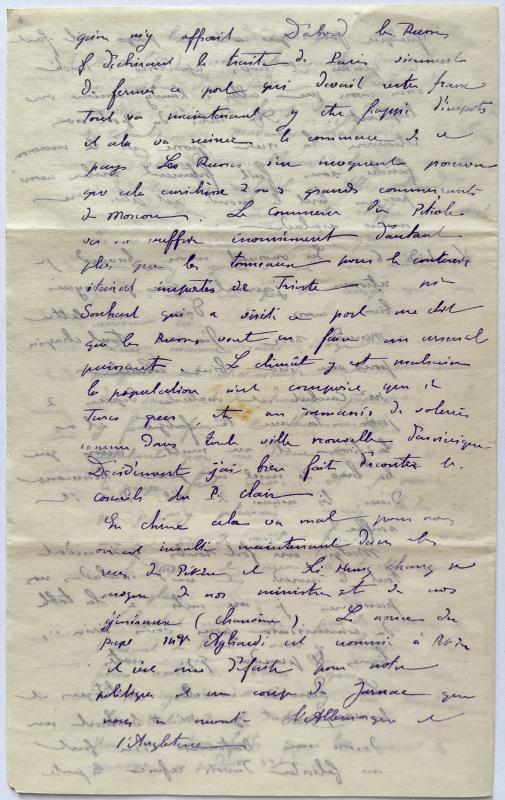 qu'on m'y offrait D'abord les Russes
déchirant le traité de Paris viennent
de fermer ce port qui devait rester franc
tout va maintenant y être frappé d'impots
et cela va ruiner le commerce de ce
pays Les Russes s'en moquent pourvu
que cela enrichisse 2 ou 3 grands commerçants
de Moscou. Le commerce du Pétrole
va en souffrir énormément d'autant
plus que les tonneaux pour le contenir
étaient importés de Trieste
qui a visité ce port me dit
que les Russes vont en faire un arsenal
puissant. Le climat y est malsain
la population n'est composée que de
Turcs grecs, et un ramassis de voleurs
comme dans toute ville nouvelle d'amérique
Décidément j'ai bien fait d'écouter les
conseils du P. clair.
En chine cela va mal pour nous
on est insulté maintenant dans les
rues de Pékin et Li Hung chang se
moque de nos ministres et de nos
généraux ( ). Le nonce du
pape Mgr Agliardi est nommé à Pékin
et c'est une défaite pour notre
politique et un coup de Jarnac que
nous a monté l'Allemagne et
l'Angleterre